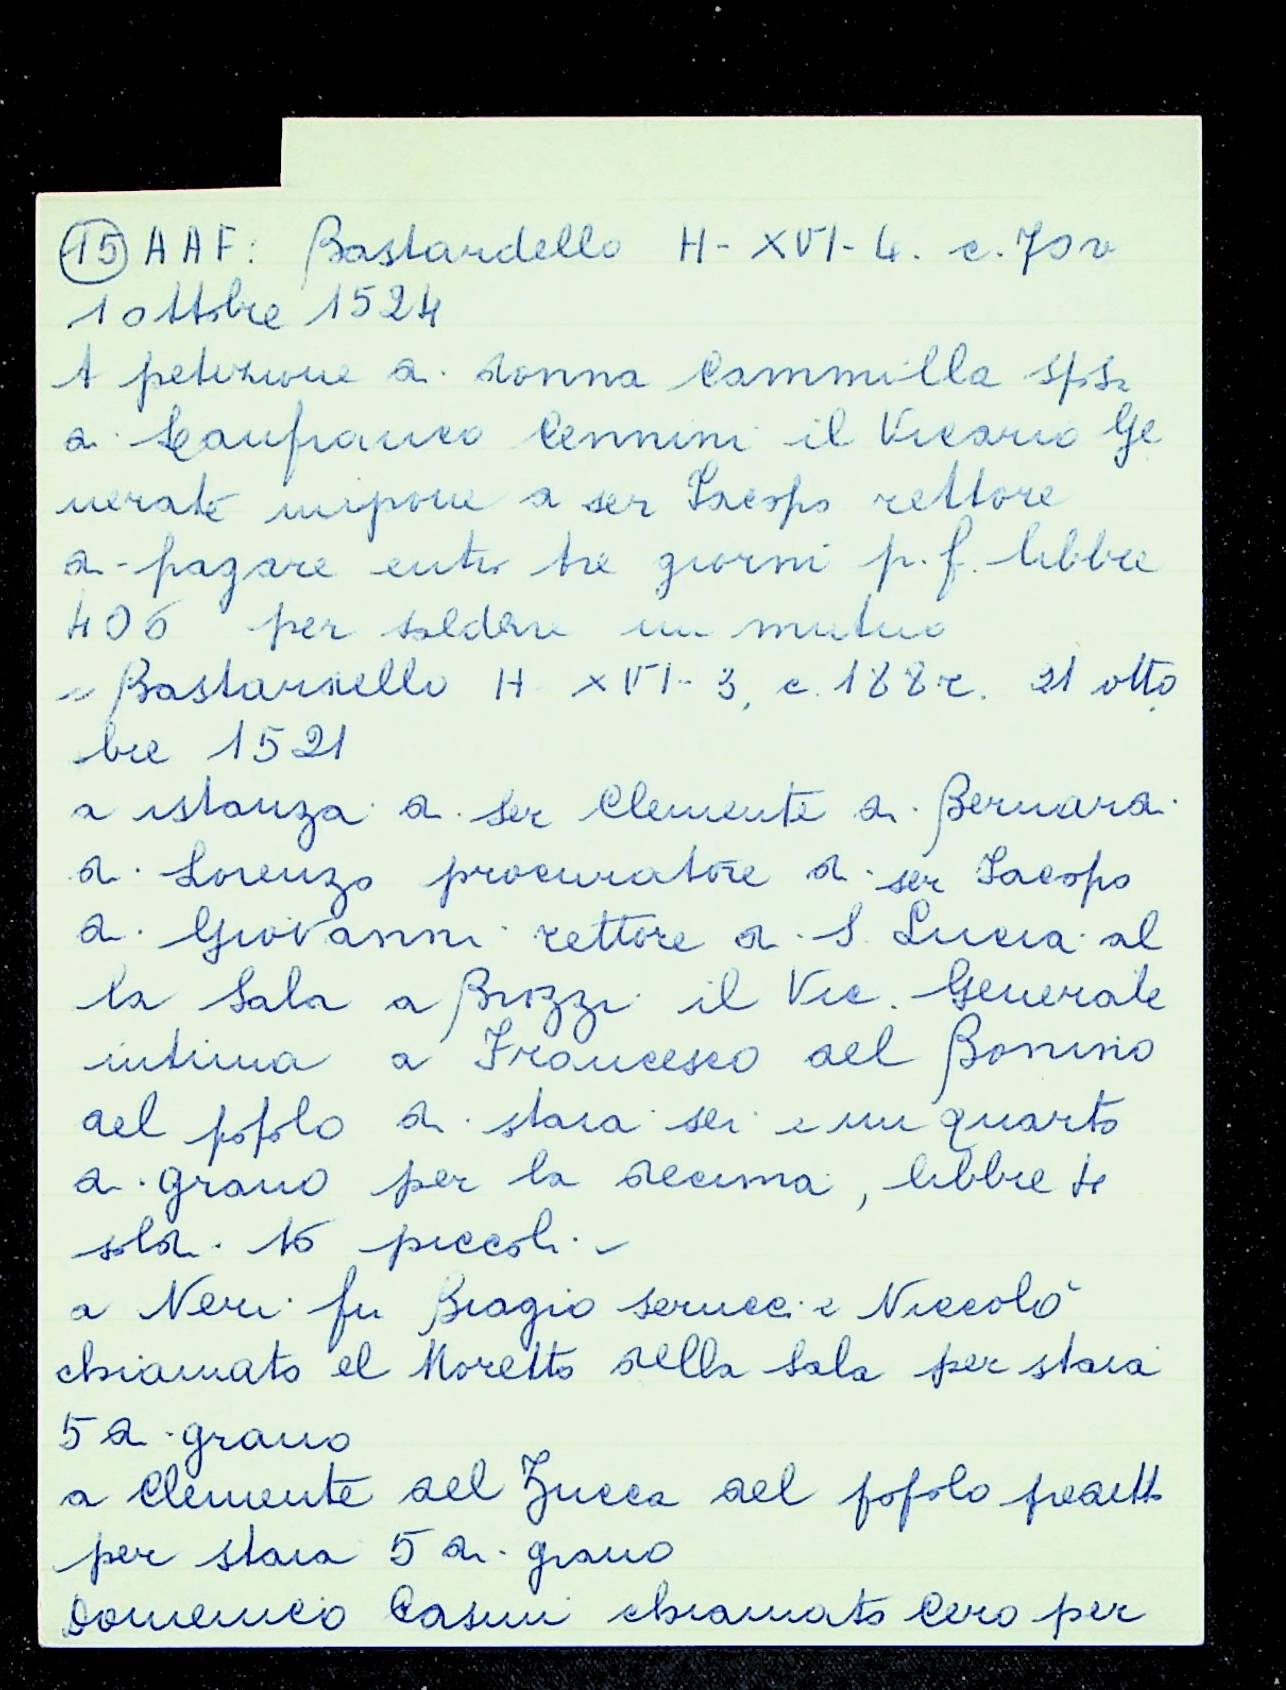 15 AAF: Bastardello H-XVI-4. c.70v
1 ottobre 1524
A petizione di donna Cammilla sposa
di Lanfranco Cennini il Vicario Ge
nerale impone a ser Iacopo rettore
di pagare entro tre giorni p.f. libbre
406 per saldare un mutuo
" Bastardello H XVI-3, c.188r. 21 otto
bre 1521
a istanza di ser Clemente di Bernardi
di Lorenzo procuratore di ser Iacopo
di Giovanni rettore di S. Lucia al
la Sala a Brozzi il Vic. Generale
intima a Francesco del Bonino
del popolo di staia sei e un quarto
di grano per la decima, libbre 4
soldi 16 piccoli.
a Neri fu Biagio Serucci e Niccolò
chiamato el Moretto della Sala per staia
5 di grano
a Clemente del Zucca del popolo predetto
per staia 5 di grano
Domenico Casini chiamato Cero per